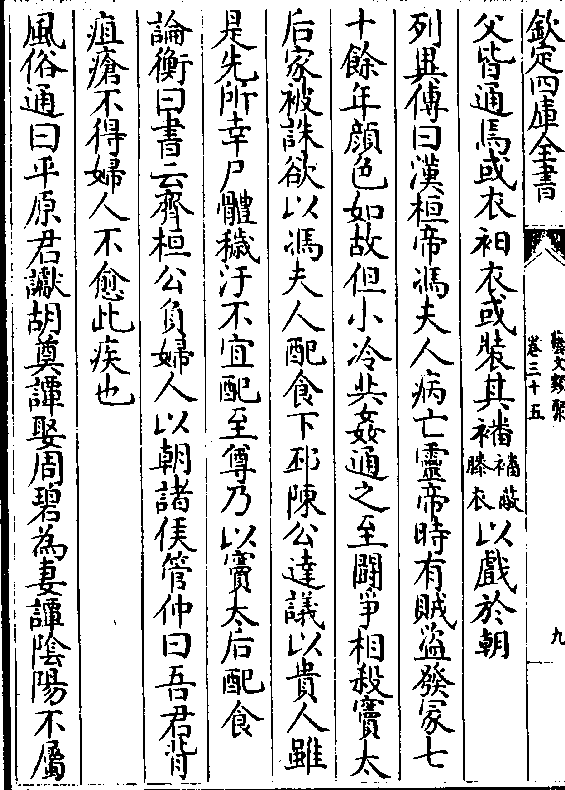 欽定四庫全書
藝文類聚
卷三十五
九
父皆通焉或衣衵衣或裝其襎襎蔽膝衣以戲於朝
列異傳曰漢桓帝馮夫人病亡靈帝時有賊盜發冢七
十餘年顔色如故但小冷共姦通之至鬭爭相殺竇太
后家被誅欲以馮夫人配食下邳陳公達議以貴人雖
是先所幸尸體穢汙不宜配至尊乃以竇太后配食
論衡曰書云齊桓公負婦人以朝諸侯管仲曰吾君背
疽瘡不得婦人不愈此疾也
風俗通曰平原君讞胡奠譚娶周碧為妻譚陰陽不屬